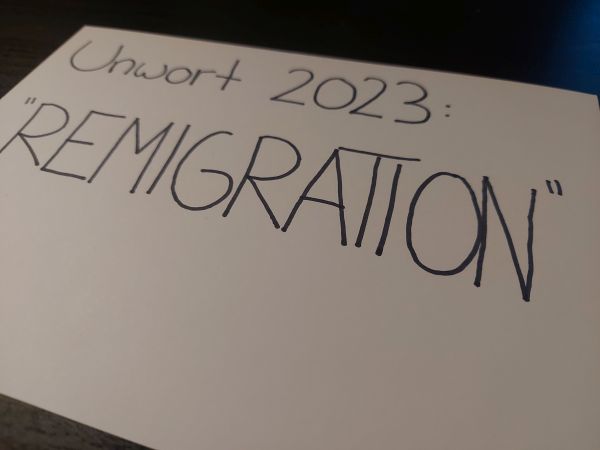 Unwort 2023:
"REMIGRATION"